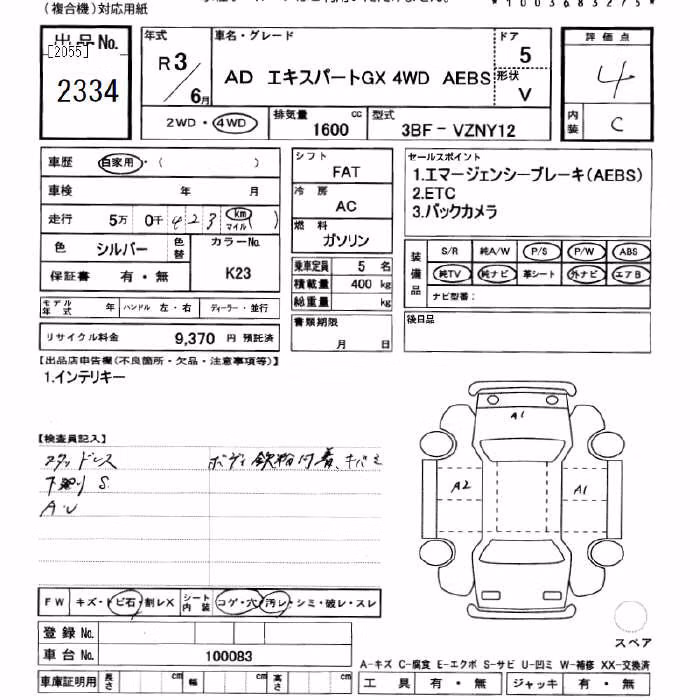 (複合機)対応用紙
*1003683275*
出品No. [2055] 2334
年式 R3/6月
車名・グレード AD エキスパートGX 4WD AEBS
ドア 5
形状 V
評価点 4
内装 C
2WD・4WD
排気量 1600 cc
型式 3BF-VZNY12
車歴 自家用・( )
車検 年 月
走行 5万 0千 4 2 3 km マイル ( )
色 シルバー 色替
カラーNo. K23
保証書 有・無
モデル年式 年 ハンドル 左・右 ディーラー・並行
リサイクル料金 9,370 円 預託済
シフト FAT
冷房 AC
燃料 ガソリン
乗車定員 5 名
積載量 400 kg
総重量 kg
書類期限 月 日
セールスポイント
1.エマージェンシーブレーキ(AEBS)
2.ETC
3.バックカメラ
装備品 S/R 純A/W P/S P/W ABS
純TV 純ナビ 革シート 外ナビ エアB
ナビ型番:
後日品
【出品店申告欄(不良箇所・欠品・注意事項等)】
1.インテリキー
【検査員記入】
下廻り S
A.U
ボディ鉄粉付着、キバミ
A1
A2
A1
FW キズ・トビ石・割レX シート内装 コゲ・穴・汚レ・シミ・破レ・スレ
登録No.
車台No. 100083
車庫証明用 長さ cm 幅 cm 高さ cm
スペア
A-キズ C-腐食 E-エクボ S-サビ U-凹ミ W-補修 XX-交換済
工具 有・無 ジャッキ 有・無